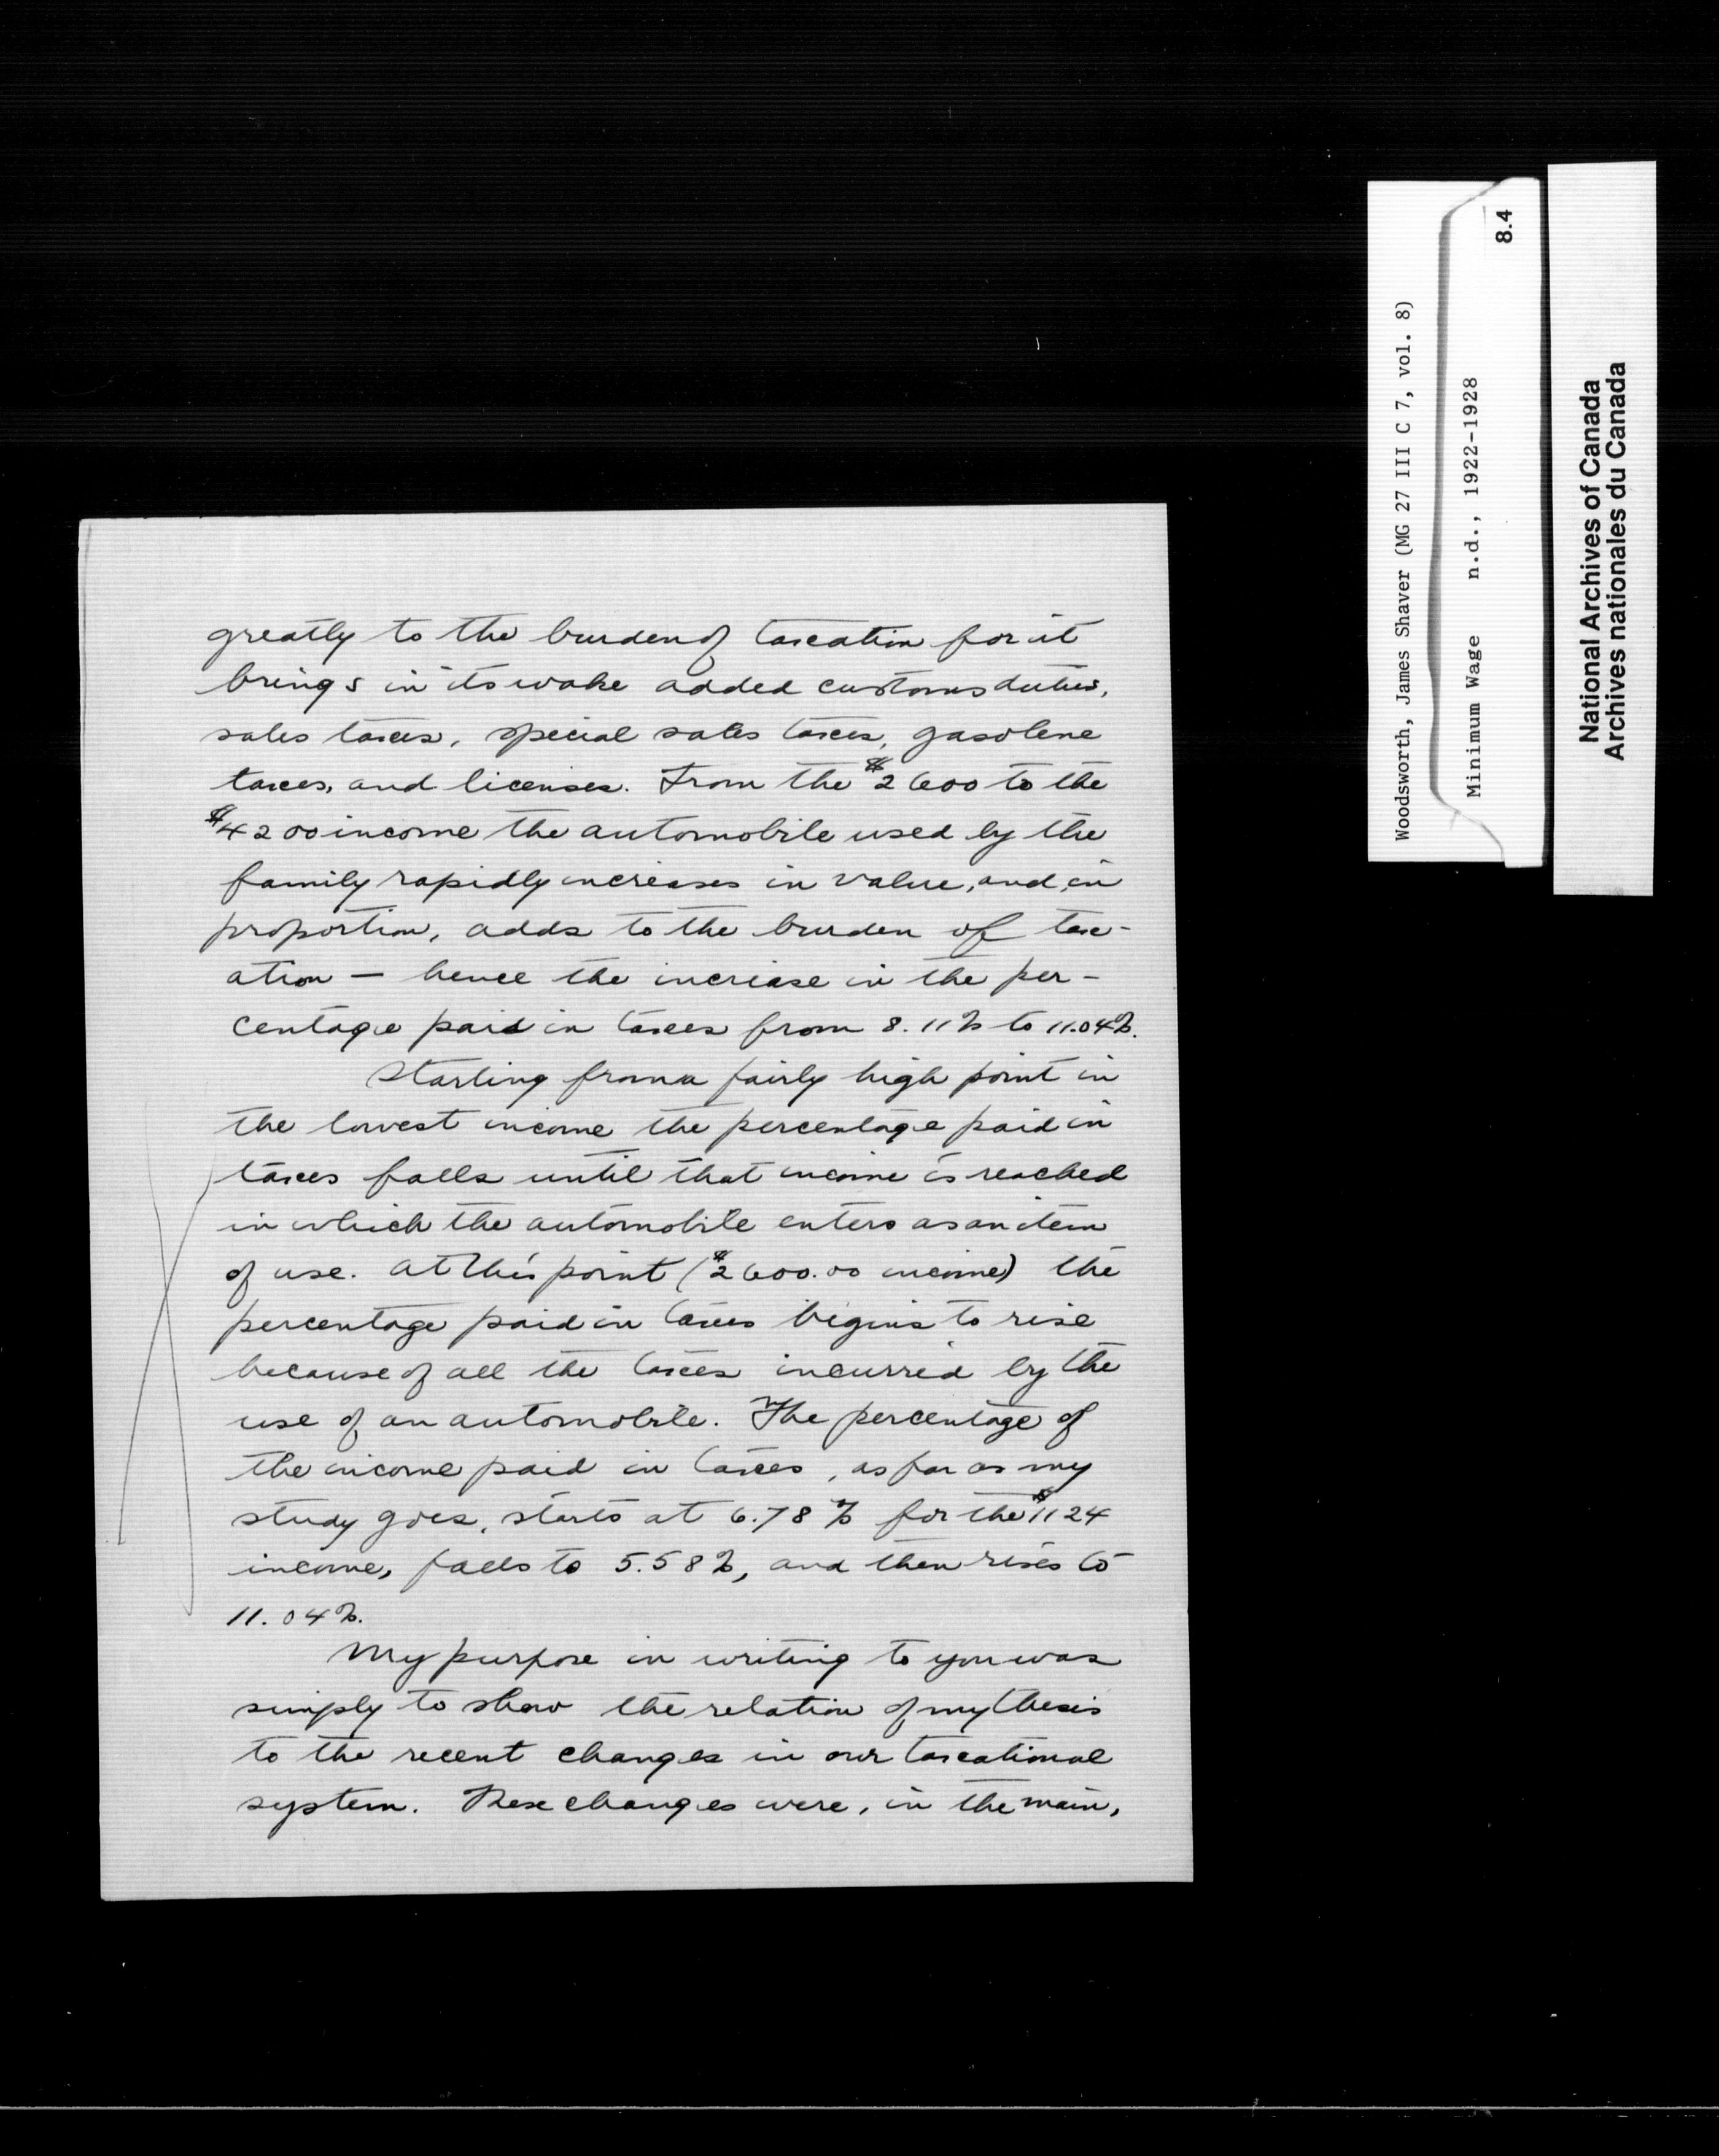 greatly to the burden of taxation for it
brings in its wake added customs duties,
sales taxes, special sales taxes, gasolene
taxes, and licenses. From the $2600 to the
$4200 income the automobile used by the
family rapidly increases in value, and, in
proportion, adds to the burden of tax-
ation — hence the increase in the per-
centage paid in taxes from 8.11% to 11.04%.
Starting from a fairly high point in
the lowest income the percentage paid in
taxes falls until that income is reached
in which the automobile enters as an item
of use. At this point ($2600.00 income) the
percentage paid in taxes begins to rise
because of all the taxes incurred by the
use of an automobile. The percentage of
the income paid in taxes, as far as my
study goes, starts at 6.78% for the $1124
income, falls to 5.58%, and then rises to
11.04%.
My purpose in writing to you was
simply to show the relation of my thesis
to the recent changes in our taxational
system. These changes were, in the main,
Woodsworth, James Shaver (MG 27 III C 7, vol. 8)
Minimum Wage n.d., 1922-1928
8.4
National Archives of Canada
Archives nationales du Canada